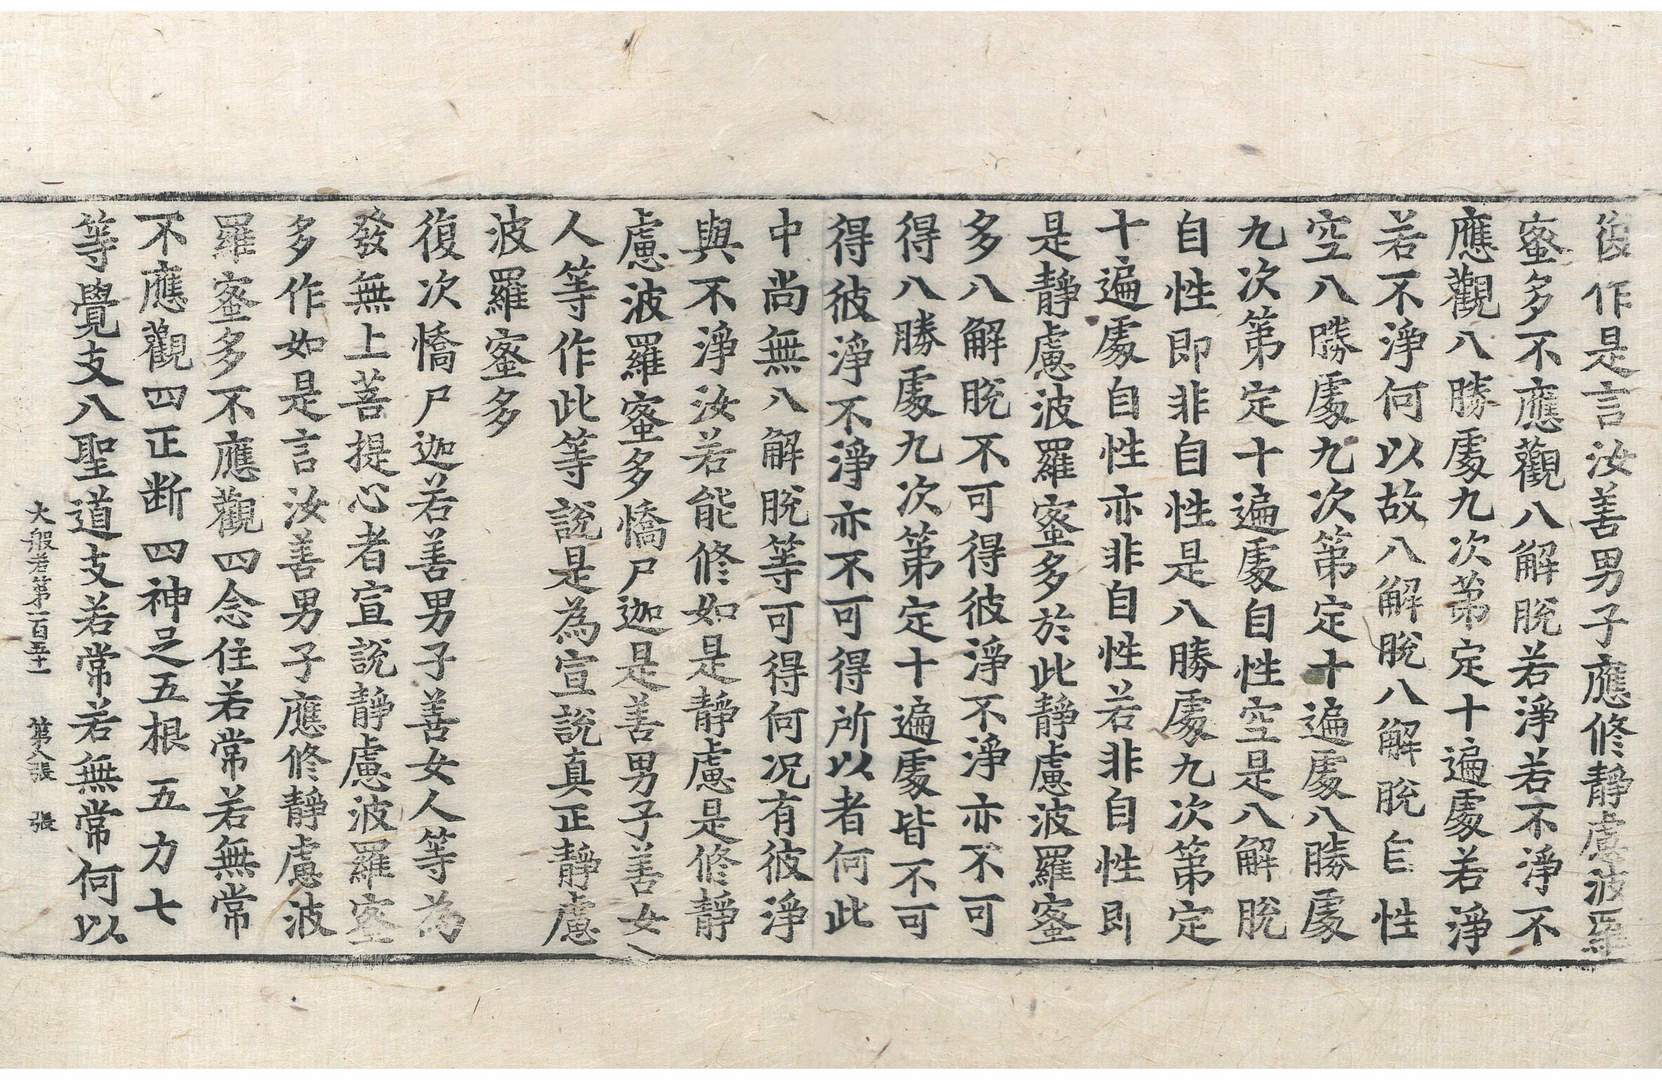 復作是言汝善男子應修靜慮波羅
蜜多不應觀八解脫若淨若不淨不
應觀八勝處九次第定十遍處若淨
若不淨何以故八解脫八解脫自性
空八勝處九次第定十遍處八勝處
九次第定十遍處自性空是八解脫
自性即非自性是八勝處九次第定
十遍處自性亦非自性若非自性即
是靜慮波羅蜜多於此靜慮波羅蜜
多八解脫不可得彼淨不淨亦不可
得八勝處九次第定十遍處皆不可
得彼淨不淨亦不可得所以者何此
中尚無八解脫等可得何况有彼淨
與不淨汝若能修如是靜慮是修靜
慮波羅蜜多憍尸迦是善男子善女
人等作此等說是為宣說真正靜慮
波羅蜜多
復次憍尸迦若善男子善女人等為
發無上菩提心者宣說靜慮波羅蜜
多作如是言汝善男子應修靜慮波
羅蜜多不應觀四念住若常若無常
不應觀四正断四神足五根五力七
等覺支八聖道支若常若無常何以
大般若第一百五十一 第八張 張